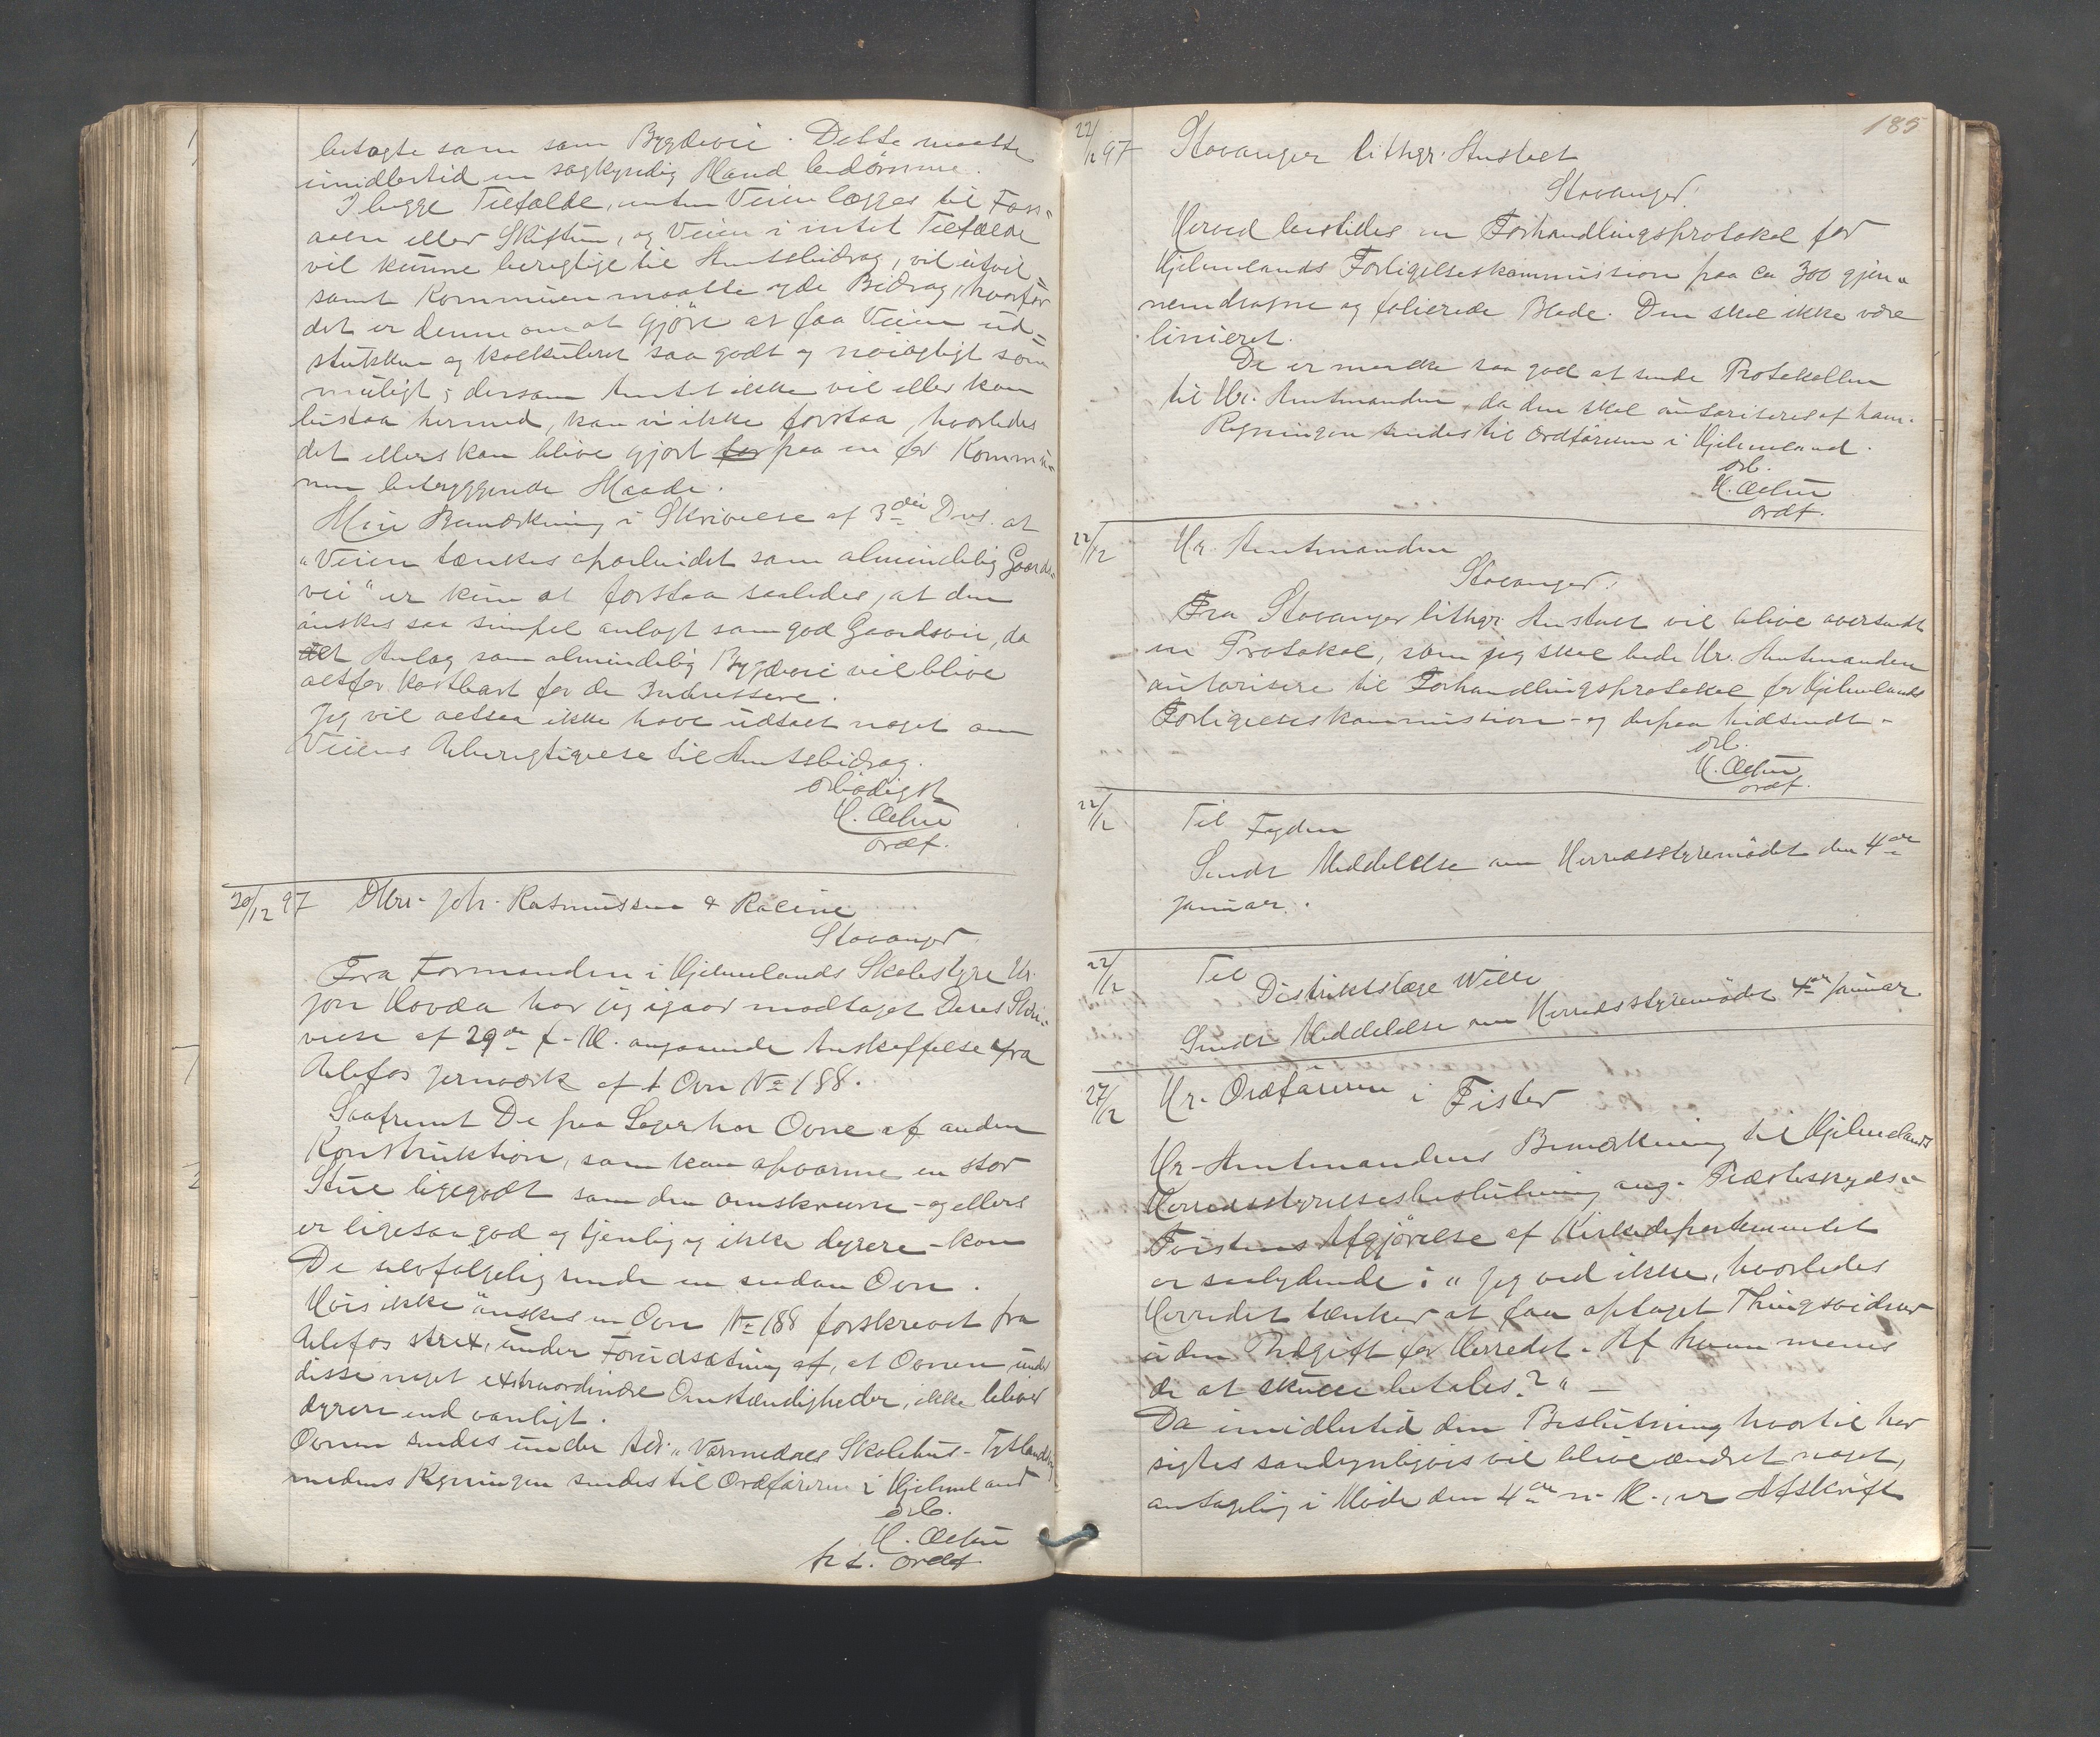 betragte som som Bygdevei. Dette maatte
imidlertid en sagkyndig Mand bedømme.
I begge Tilfælde, enten Veien lægges til Foss-
aaen eller Skiftun, og Veien i intet Tilfælde
vil kunne berettige til Amtsbidrag, vil utvil-
somt Kommunen maatte yde Bidrag, hvorfor
det er denne om at gjøre at faa Veien ud-
stukken og kalkuleret saa godt og nøiagtigt som
muligt; dersom Amtet ikke vil eller kan
bistaa hermed, kan vi ikke forstaa, hvorledes
det ellers kan blive gjort for paa en for Kommu-
nen betryggende Maade.
Min Bemærkning i Skrivelse af 3die Dms. at
"Veien tænkes oparbeidet som almindelig Gaards-
vei" er kun at forstaa saaledes, at den
ønskes saa simpel anlagt som god Gaardsvei, da
det Anlæg som almindelig Bygdevei vil blive
altfor kostbart for de Interessere.
Jeg vil altsaa ikke have udtalt noget om
Veiens Uberegtigelse til Amtsbidrag.
Ørbødigst
H. Ølhu
ordf.
20/12 97 DHrr. Joh. Rasmussen & Racine
Stavanger.
Fra Formanden i Hjelmelands Skolestyre Hr.
Jon Hovda har jeg igaar modtaget Deres Skri-
velse af 29de f. M. angaaende Anskaffelse fra
Ulefos Jernværk af 1 Ovn No 188.
Saafremt De paa Lager har Ovne af anden
Konstruktion, som kan opvarme en stor
Stue ligegodt som den omskrevne - og ellers
er ligesaa god og tjenlig og ikke dyrere - kan
De selvfølgelig sende en saadan Ovn.
Hvis ikke ønskes en Ovn No 188 forskrevet fra
Ulefos strax, under Forudsætning af, at Ovnen under
disse noget extraordinære Omstændigheder, ikke bliver
dyrere end vanligt.
Ovnen sendes under Adr. "Vormedals Skolehus - Tytlandsvik"
medens Regningen sendes til Ordføreren i Hjelmeland
ørb.
H. Ølhu
p. t. ordf.
185
22/12 97 Stavanger lithgr. Anstalt
Stavanger.
Herved bestilles en Forhandlingsprotokol for
Hjelmelands Forligelseskommission paa ca 300 gjen-
nemdragne og folierede Blade. Den skal ikke være
linieret.
De er maaske saa god at sende Protokollen
til Hr. Amtmanden, da den skal autoriseres af ham.
Regningen sendes til Ordføreren i Hjelmeland.
ørb.
H. Ølhu
ordf.
22/12 Hr. Amtmanden
Stavanger.
Fra Stavanger lithgr. Anstalt vil blive oversendt
en Protokol, som jeg skal bede Hr. Amtmanden
autorisere til Forhandlingsprotokol for Hjelmelands
Forligelseskommission - og derpaa hidsendt.
ørb.
H. Ølhu
ordf.
22/12 Til Fogden
Sendt Meddelelse om Herredsstyremødet den 4de
Januar.
22/12 Til
Distriktslæge Wille
Sendt Meddelelse om Herredsstyremødet 4de Januar
27/12 Hr. Ordføreren i Fister
Hr. Amtmandens Bemærkning til Hjelmelands
Herredsstyrelsesbeslutning ang. Præsteskyds-
Tvistens Afgjørelse af Kirkedepartementet
er saalydende: "Jeg ved ikke, hvorledes
Herredet tænker at faa optaget Thingsvidner
uden Udgift for Herredet. Af hvem menes
de at skulle betales?" -
Da imidlertid den Beslutning hvortil her
sigtes sandsynligvis vil blive ændret noget,
antagelig i Møde den 4de n. M., er Afskrift